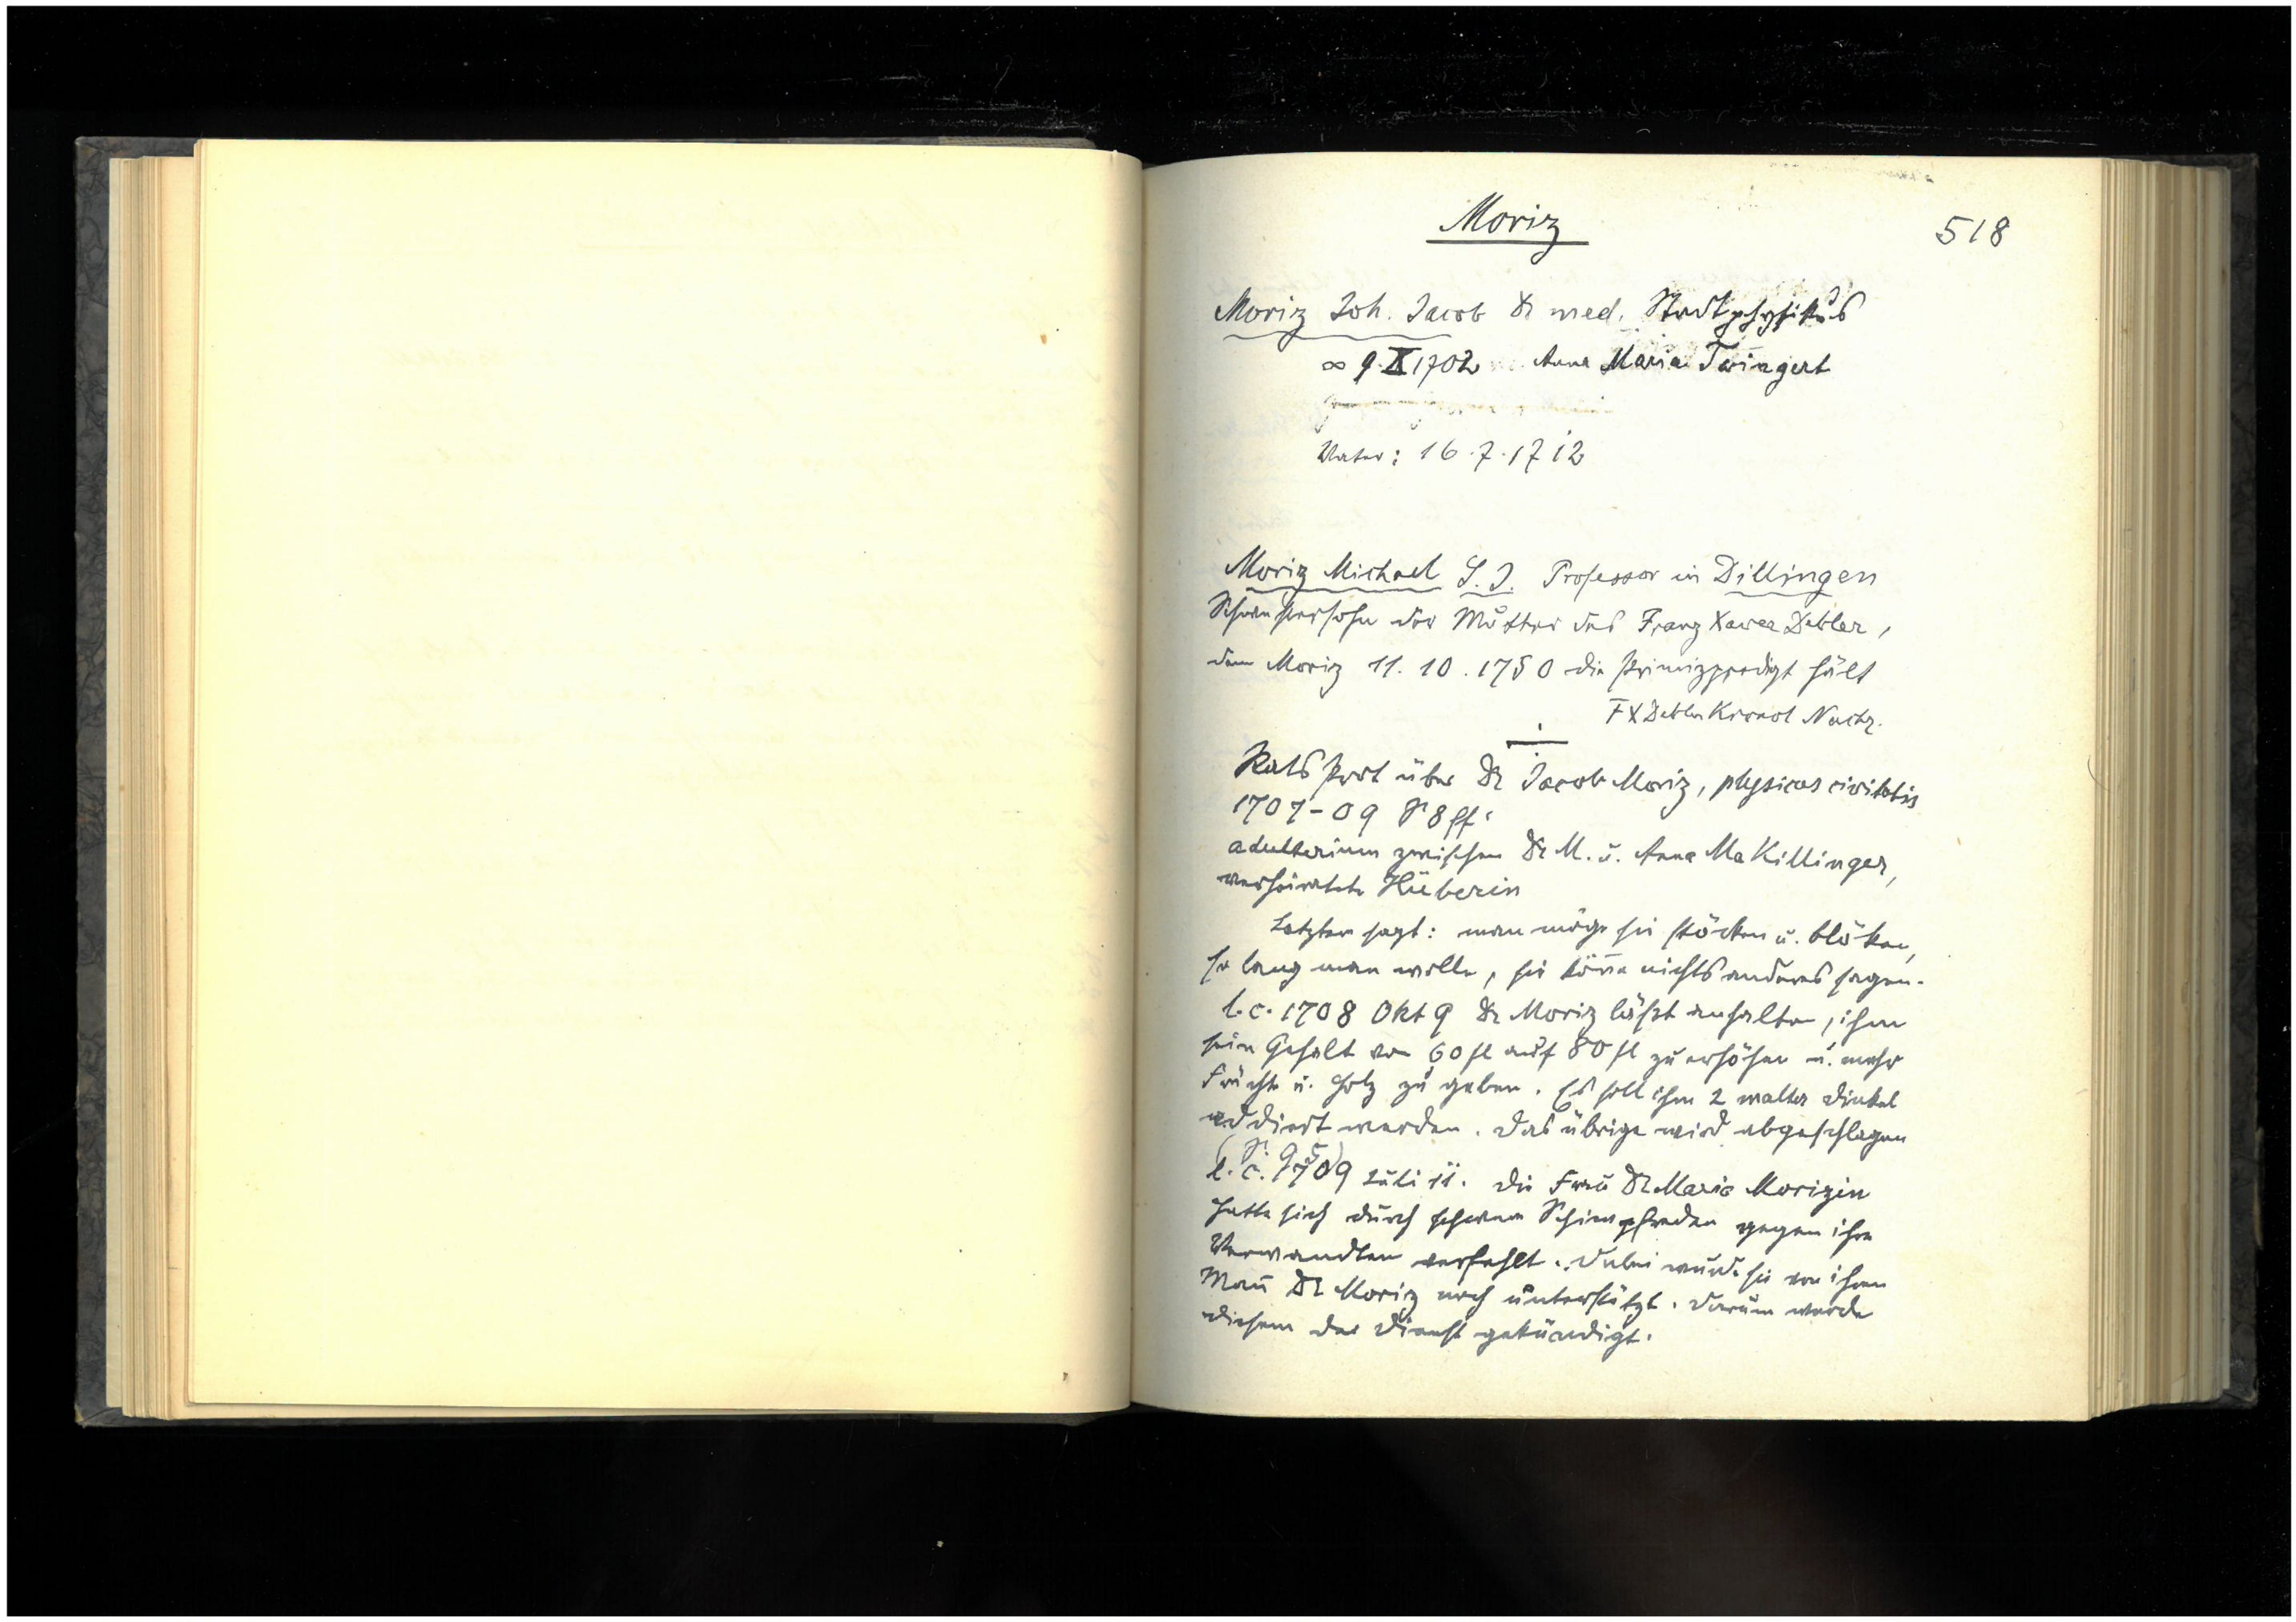 Moriz
518
Moriz Joh. Jacob Dr med. Stadtphysikus
∞ 9.X 1702 Anna Maria Twingert
Vater: 16.7.1712
Moriz Michael S.J. Professor in Dillingen
Schwestersohn der Mutter des Franz Xaver Debler,
dem Moriz 11.10.1750 die Primizpredigt hält
FX Debler Nachr.
Rats Prot über Dr Jacob Moriz, physicus civitatis
1707-09 S 8 ff:
adulterium zwischen Dr M. u. Anna Ma Killinger,
verheiratete Hüberin
Letztere sagt: man möge sie stöcken u. blöken,
so lang man wolle, sie kön̄e nichts anderes sagen.
l.c. 1708 Okt 9 Dr Moriz läßt anhalten, ihm
sein Gehalt von 60 fl auf 80 fl zu erhöhen u. mehr
Früchte u. Holz zu geben. Es soll ihm 2 malter Dinkel
addiert werden. Das übrige wird abgeschlagen
(S. 95)
l.c. 1709 Juli 11. Die Frau Dr Maria Morizin
hatte sich durch schwere Schimpfreden gegen ihre
Verwandten verfehlt. Dabei wurde sie von ihrem
Man̄ Dr Moriz noch unterstützt. Darum werde
diesem der Dienst gekündigt.